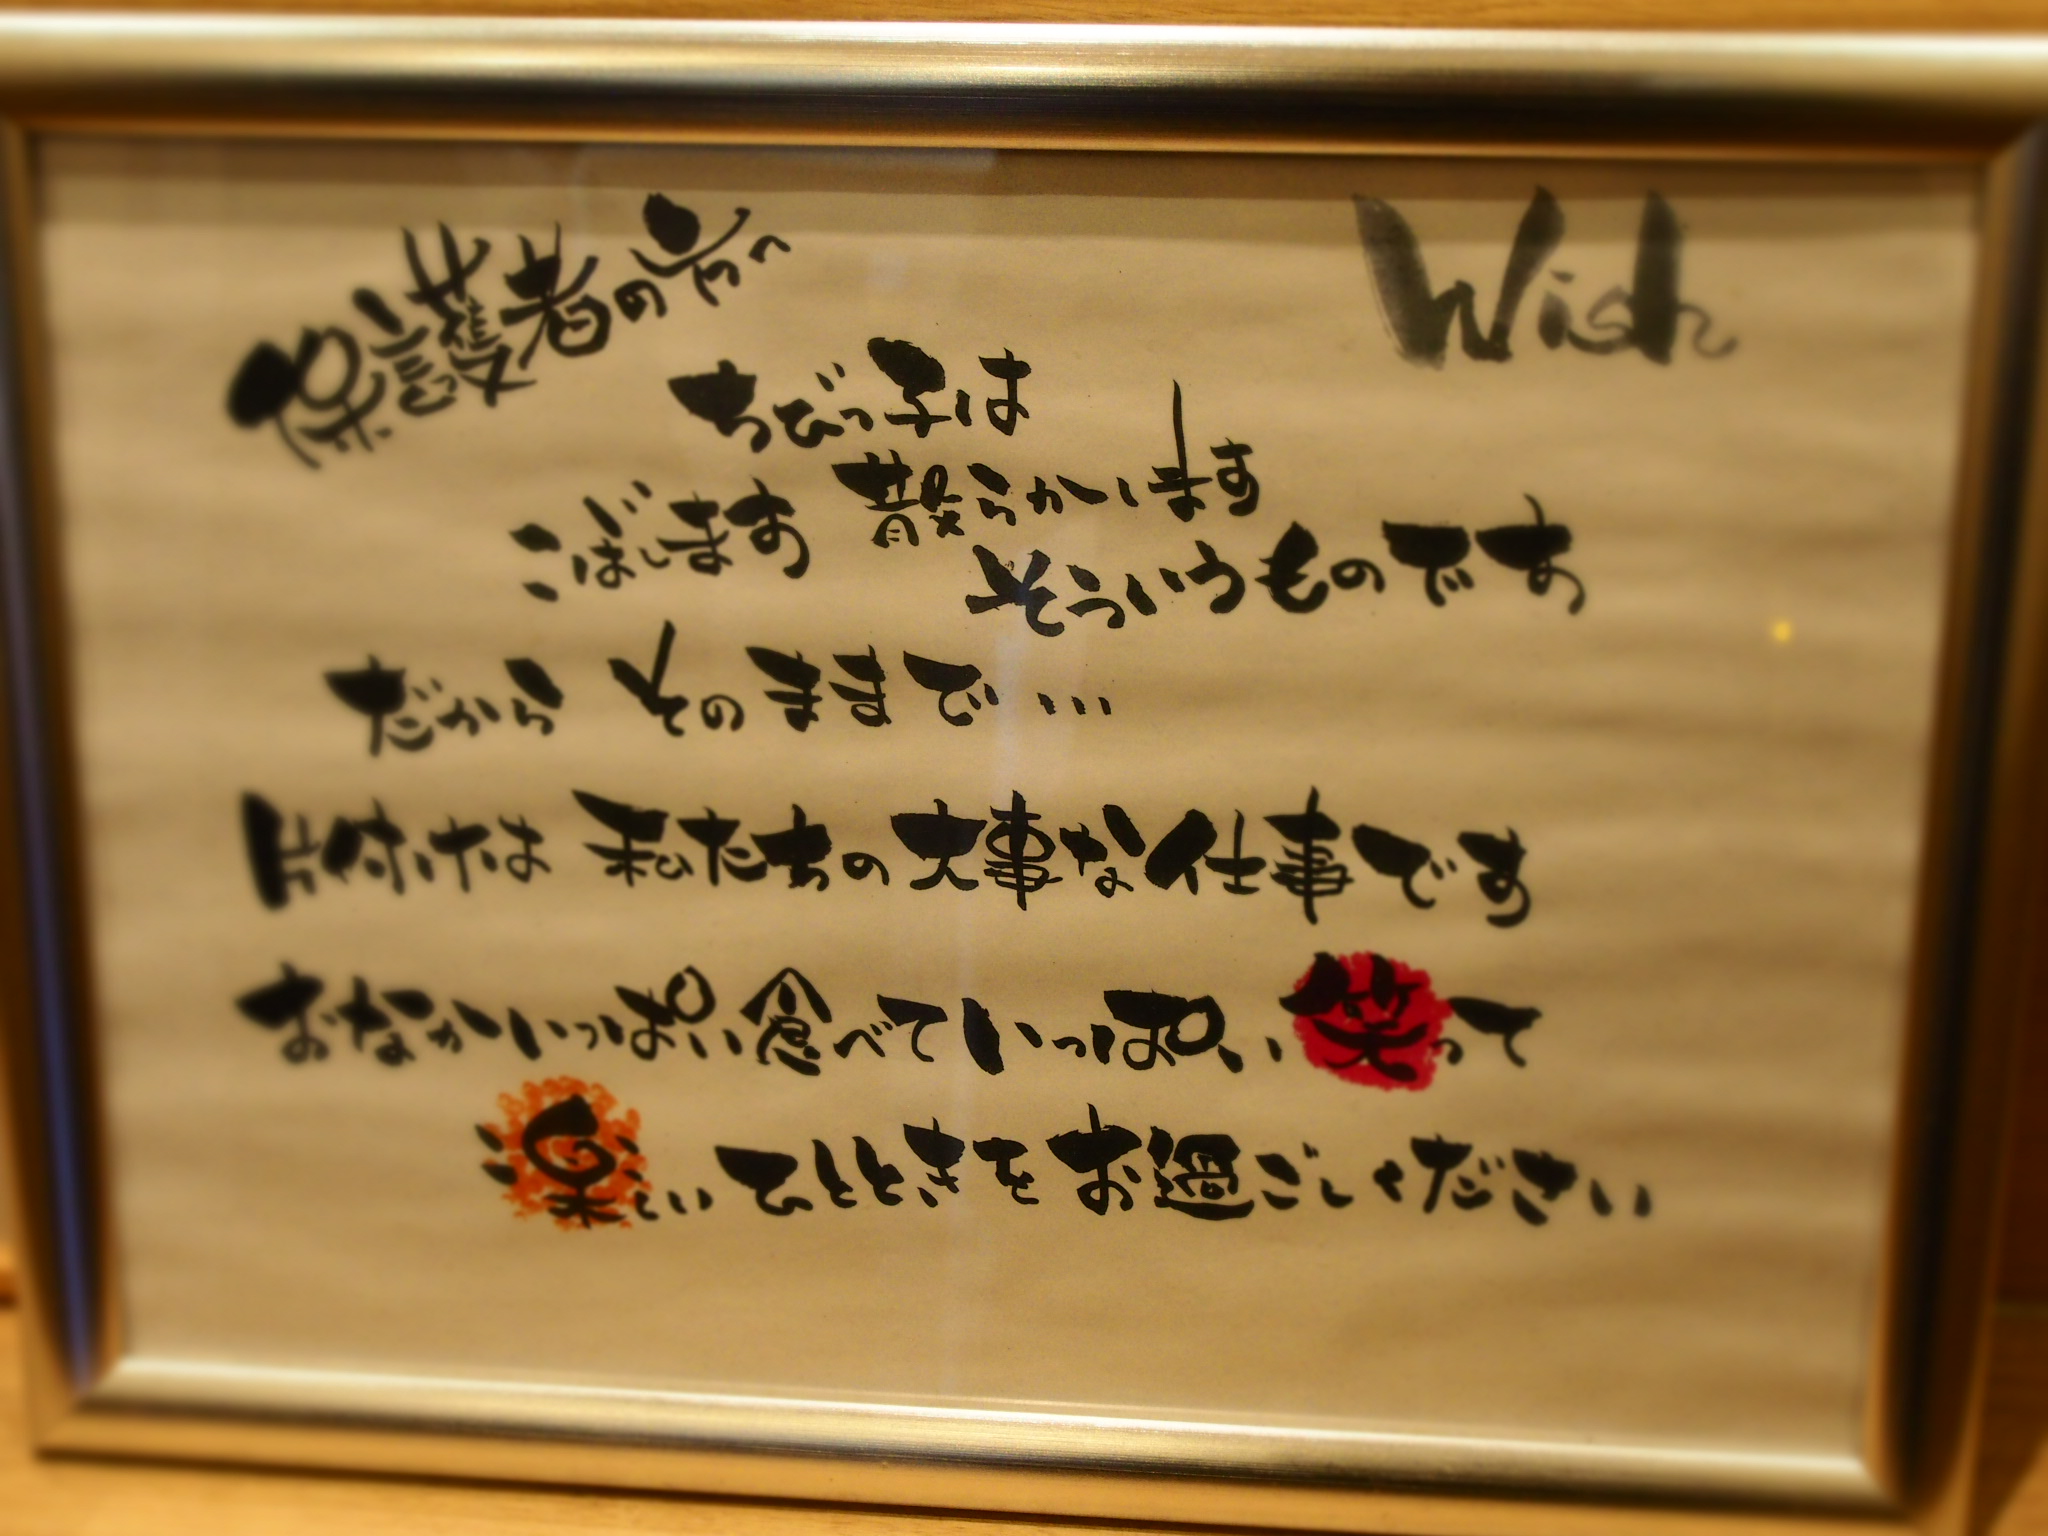 保護者の方へ
Wish
ちびっ子は
こぼします 散らかします
そういうものです
だから そのままで…
片付けは 私たちの大事な仕事です
おなかいっぱい食べていっぱい笑って
楽しいひとときをお過ごしください